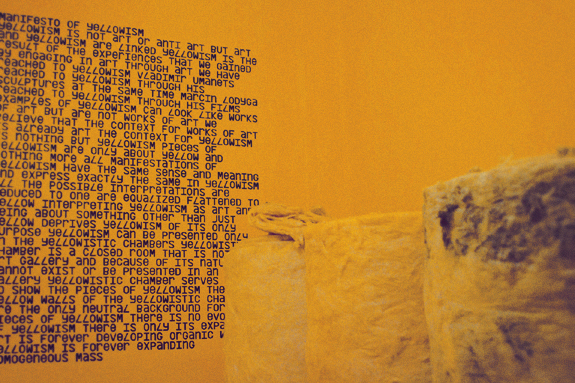 MANIFESTO OF YELLOWISM
YELLOWISM IS NOT ART OR ANTI ART BUT ART
AND YELLOWISM ARE LINKED YELLOWISM IS THE
RESULT OF THE EXPERIENCES THAT WE GAINED
BY ENGAGING IN ART THROUGH ART WE HAVE
REACHED TO YELLOWISM VLADIMIR UMANETS
REACHED TO YELLOWISM THROUGH HIS
SCULPTURES AT THE SAME TIME MARCIN LODYGA
REACHED TO YELLOWISM THROUGH HIS FILMS
EXAMPLES OF YELLOWISM CAN LOOK LIKE WORKS
OF ART BUT ARE NOT WORKS OF ART WE
BELIEVE THAT THE CONTEXT FOR WORKS OF ART
IS ALREADY ART THE CONTEXT FOR YELLOWISM
IS NOTHING BUT YELLOWISM PIECES OF
YELLOWISM ARE ONLY ABOUT YELLOW AND
NOTHING MORE ALL MANIFESTATIONS OF
YELLOWISM HAVE THE SAME SENSE AND MEANING
AND EXPRESS EXACTLY THE SAME IN YELLOWISM
ALL THE POSSIBLE INTERPRETATIONS ARE
REDUCED TO ONE ARE EQUALIZED FLATTENED TO
YELLOW INTERPRETING YELLOWISM AS ART AND
BEING ABOUT SOMETHING OTHER THAN JUST
YELLOW DEPRIVES YELLOWISM OF ITS ONLY
PURPOSE YELLOWISM CAN BE PRESENTED ONLY
IN THE YELLOWISTIC CHAMBERS YELLOWISTIC
CHAMBER IS A CLOSED ROOM THAT IS NO
ART GALLERY AND BECAUSE OF ITS NATU
CANNOT EXIST OR BE PRESENTED IN AN
GALLERY YELLOWISTIC CHAMBER SERVES
TO SHOW THE PIECES OF YELLOWISM THE
YELLOW WALLS OF THE YELLOWISTIC CHA
ARE THE ONLY NEUTRAL BACKGROUND FOR
PIECES OF YELLOWISM THERE IS NO EVO
IN YELLOWISM THERE IS ONLY ITS EXPA
ART IS FOREVER DEVELOPING ORGANIC W
YELLOWISM IS FOREVER EXPANDING
HOMOGENEOUS MASS